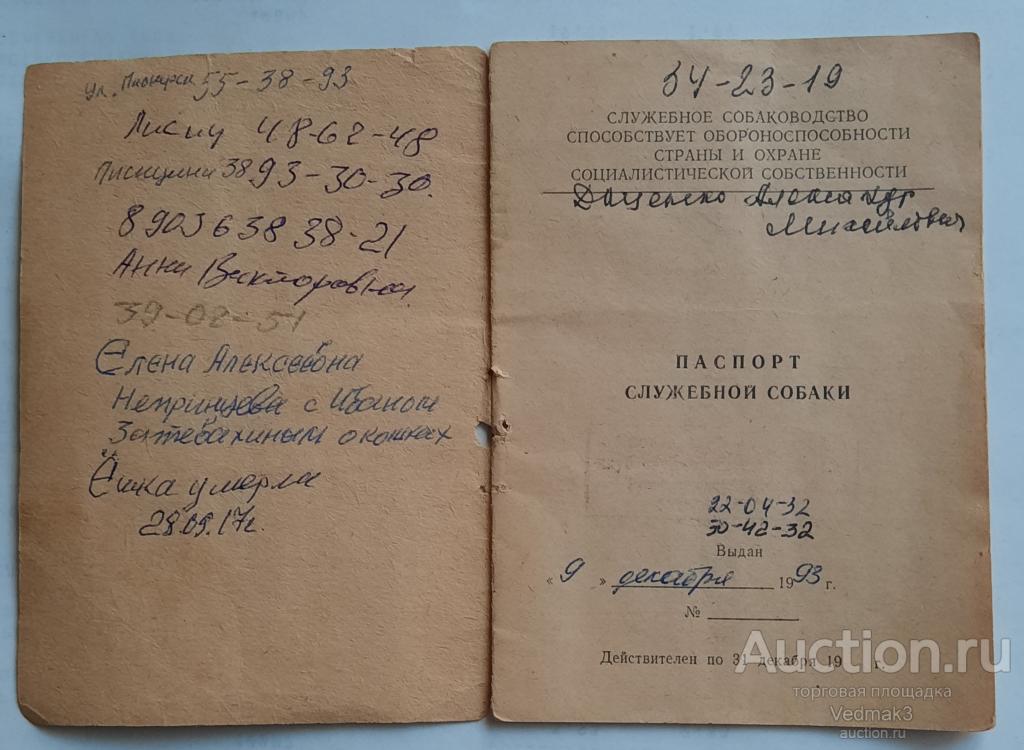 ул. Пионерск 55-38-93
48-62-48
93-30-30
8903 638 38-21
Анна Викторовна
39-02-51
Елена Алексеевна
Непринцева с Иваном
Затевахиным о кошках
Ёшка умерла
28.09.17г.
54-23-19
СЛУЖЕБНОЕ СОБАКОВОДСТВО
СПОСОБСТВУЕТ ОБОРОНОСПОСОБНОСТИ
СТРАНЫ И ОХРАНЕ
СОЦИАЛИСТИЧЕСКОЙ СОБСТВЕННОСТИ
Доценко Александр
Михайлович
ПАСПОРТ
СЛУЖЕБНОЙ СОБАКИ
22-04-32
50-42-32
Выдан
« 9 » декабря 1993 г.
№
Действителен по 31 декабря 19 г.
Auction.ru
торговая площадка
Vedmak3
auction.ru